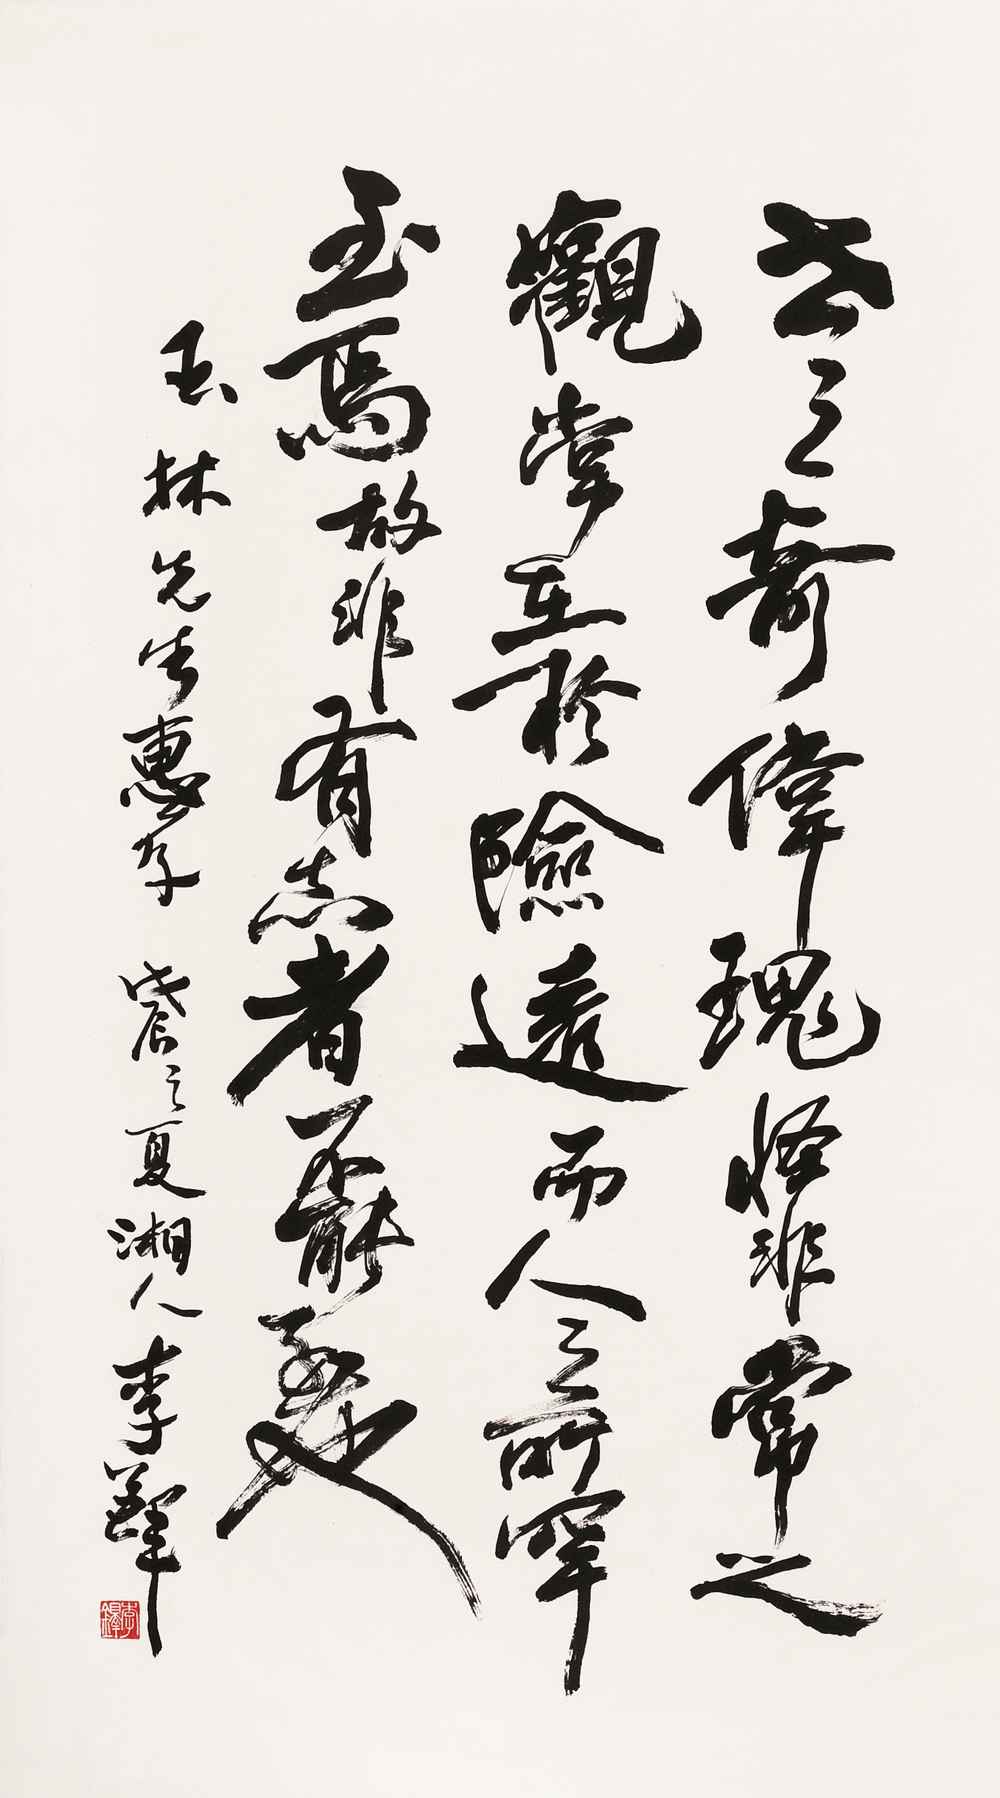 世之奇偉瑰怪非常之
觀常在於險遠而人之所罕
至焉故非有志者不能至也
玉林先生惠存 戊辰之夏湘人李鐸
李鐸